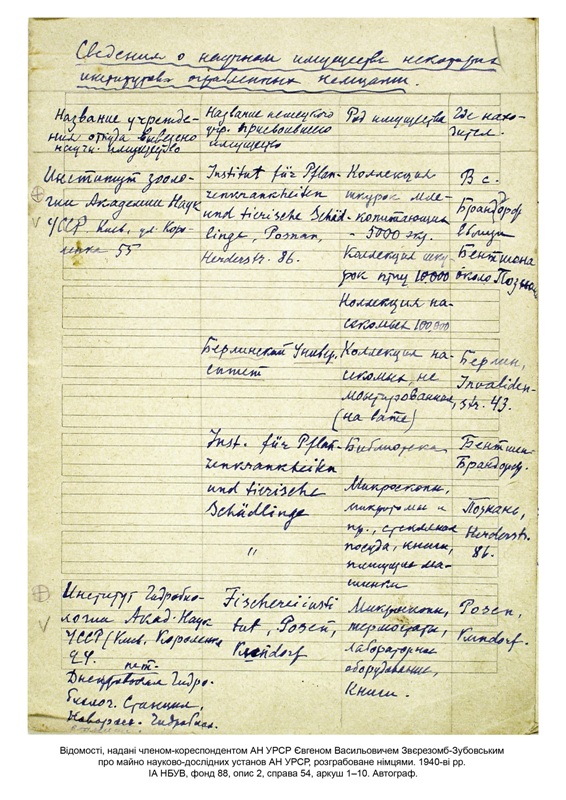 Сведения о научном имуществе некоторых
институтов ограбленных немцами.
Название учрежде-
ния откуда вывезено
научн. имущество
Название немецкого
учр. присвоившего
имущество
Род имущества
Где нахо-
дится.
Институт зооло-
гии Академии Наук
УССР. Киев, ул. Коро-
ленко 55
Institut für Pflan-
zenkrankheiten
und tierische Schäd-
linge, Posnan,
Herderstr. 86.
Коллекция
шкурок мле-
копитающих
- 5000 экз.
Коллекция шку-
рок птиц 10.000
Коллекция на-
секомых 100.000
В с.
Брандорф
около
Берлинский Универ.
ситет
Коллекция на-
секомых, не
монтированная,
(на вате)
Берлин,
Invaliden-
str. 43.
Inst. für Pflan-
zenkrankheiten
und tierische
Schädlinge
"
Библиотека
Микроскопы,
микротомы и
пр., стеклянная
посуда, книги,
пишущие ма-
шинки
Бентшен-
Брандорф.
Познань,
Herderstr.
86.
Институт Гидробио-
логии Акад. Наук
УССР (Киев, Короленко
Днепровская Гидро-
биолог. Станция,
Fischereiinsti
tut, Posen,
Микроскопы,
термостаты,
лабораторное
оборудование,
Книги.
Posen,
Відомості, надані членом-кореспондентом АН УРСР Євгеном Васильовичем Звєрезомб-Зубовським
про майно науково-дослідних установ АН УРСР, розграбоване німцями. 1940-ві рр.
ІА НБУВ, фонд 88, опис 2, справа 54, аркуш 1–10. Автограф.